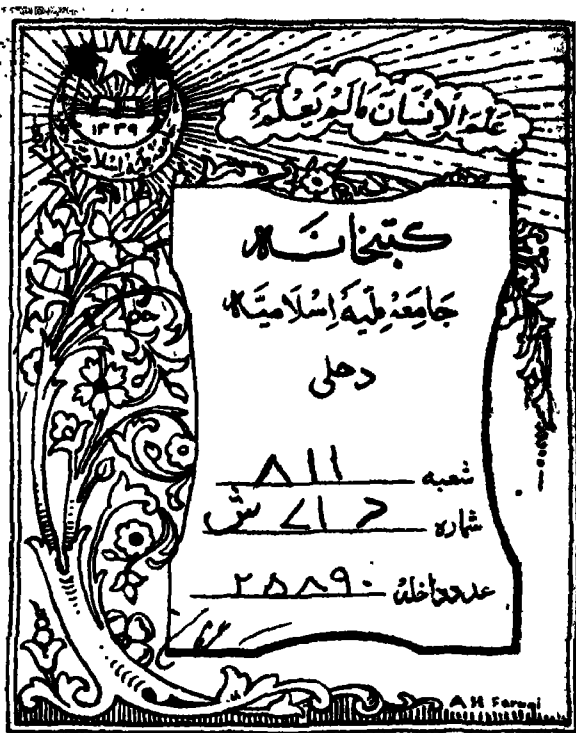 ۱۳۳۹
عَلَّمَ الْاِنْسَانَ مَالَمْ يَعْلَمْ
کتبخانہ
جَامِعَہ مِلّیَہ اِسْلَامیَّہ
دھلی
شعبہ ۸۱۱
شمارہ
عدد داخلہ ۲۸۸۹۰
A H Faruqi